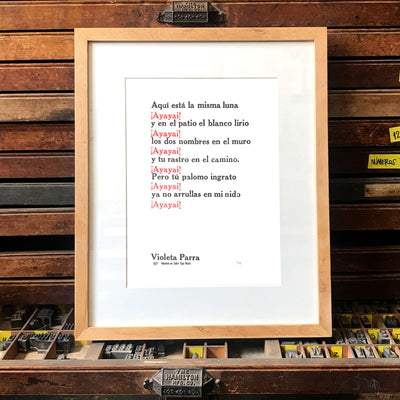 HAMILTON
Aquí está la misma luna
¡Ayayai!
y en el patio el blanco lirio
¡Ayayai!
los dos nombres en el muro
¡Ayayai!
y tu rastro en el camino.
¡Ayayai!
Pero tú palomo ingrato
¡Ayayai!
ya no arrullas en mi nido
¡Ayayai!
Violeta Parra
12
NÚMEROS
THE
HAMILTON
MFG. CO.